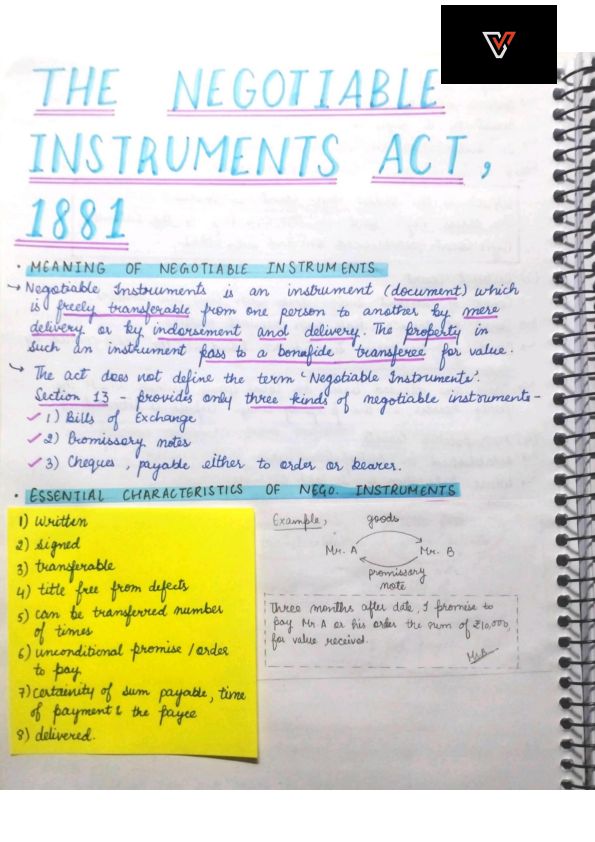 THE NEGOTIABLE
INSTRUMENTS ACT,
1881
• MEANING OF NEGOTIABLE INSTRUMENTS
→ Negotiable Instruments is an instrument (document) which
is freely transferable from one person to another by mere
delivery or by indorsement and delivery. The property in
such an instrument pass to a bonafide transferee for value.
→ The act does not define the term 'Negotiable Instruments'.
Section 13 - provides only three kinds of negotiable instruments -
✓ 1) Bills of Exchange
✓ 2) Promissory notes
✓ 3) Cheques, payable either to order or bearer.
• ESSENTIAL CHARACTERISTICS OF NEGO. INSTRUMENTS
1) Written
2) signed
3) transferable
4) title free from defects
5) can be transferred number
of times
6) unconditional promise / order
to pay
7) certainity of sum payable, time
of payment & the payee
8) delivered.
Example,
goods
Mr. A
Mr. B
promissary
note
Three months after date, I promise to
pay Mr A or his order the sum of ₹10,000,
for value received.
Mr.B